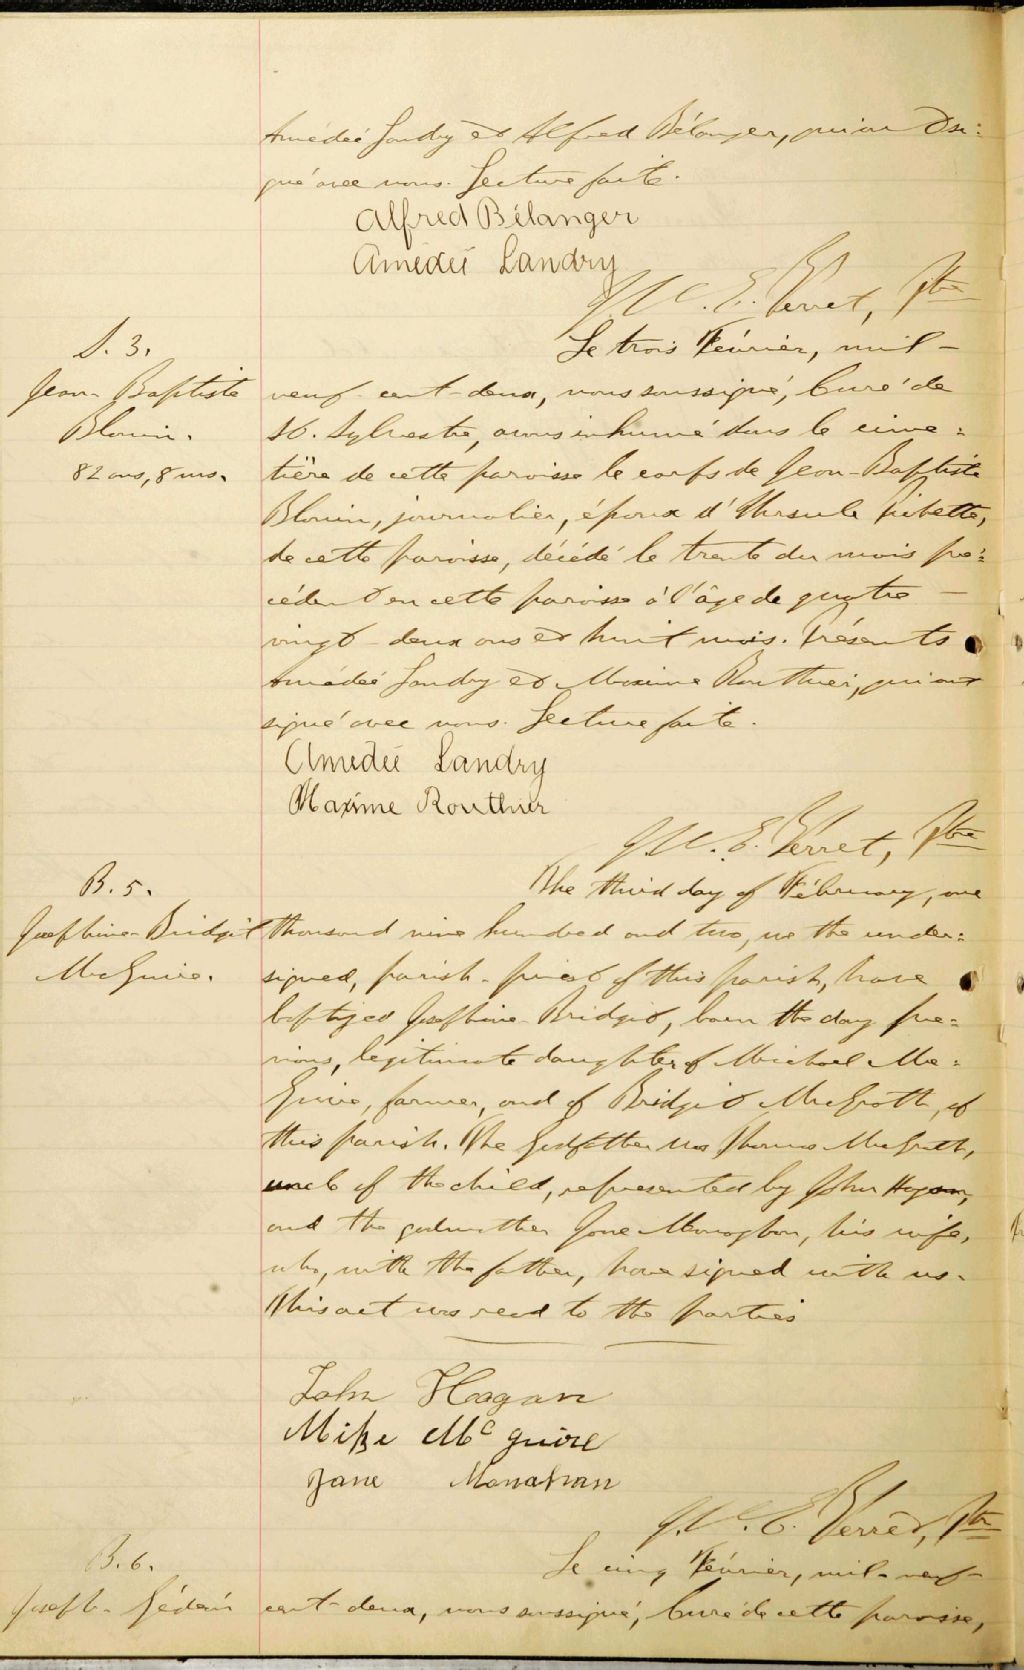 Amédée Landry et Alfred Bélanger, qui ont si-
gné avec nous. Lecture faite.
Alfred Bélanger
Amédée Landry
E. Verret, Ptre
S. 3.
Jean-Baptiste
Blouin.
82 ans, 8 ms.
Le trois Février, mil-
neuf-cent-deux, nous soussigné, Curé de
St. Sylvestre, avons inhumé dans le cime-
tière de cette paroisse le corps de Jean-Baptiste
Blouin, journalier, époux d'Ursule
de cette paroisse, décédé le trente du mois pré-
cédent en cette paroisse à l'âge de quatre-
vingt-deux ans et huit mois. Présents
Amédée Landry et Maxime Routhier, qui ont
signé avec nous. Lecture faite.
Amedée Landry
Maxime Routhier
E. Verret, Ptre
B. 5.
Josephine-Bridgit
McGuire.
The third day of February, one
thousand nine hundred and two, we the under-
signed, parish-priest of this parish, have
baptized Josephine-Bridgit, born the day pre-
vious, legitimate daughter of Michael Mc-
Guire, farmer, and of Bridgit McGrath, of
this parish. The Godfather was Thomas McGrath,
uncle of the child, represented by John Hagan,
and the godmother Jane Monaghan, his wife,
who, with the father, have signed with us.
This act was read to the parties
John Hagan
Mike Mc guire
Jane Monahan
E. Verret, Ptre
B. 6.
Joseph-Gédéon
Le cinq Février, mil-neuf-
cent-deux, nous soussigné, Curé de cette paroisse,